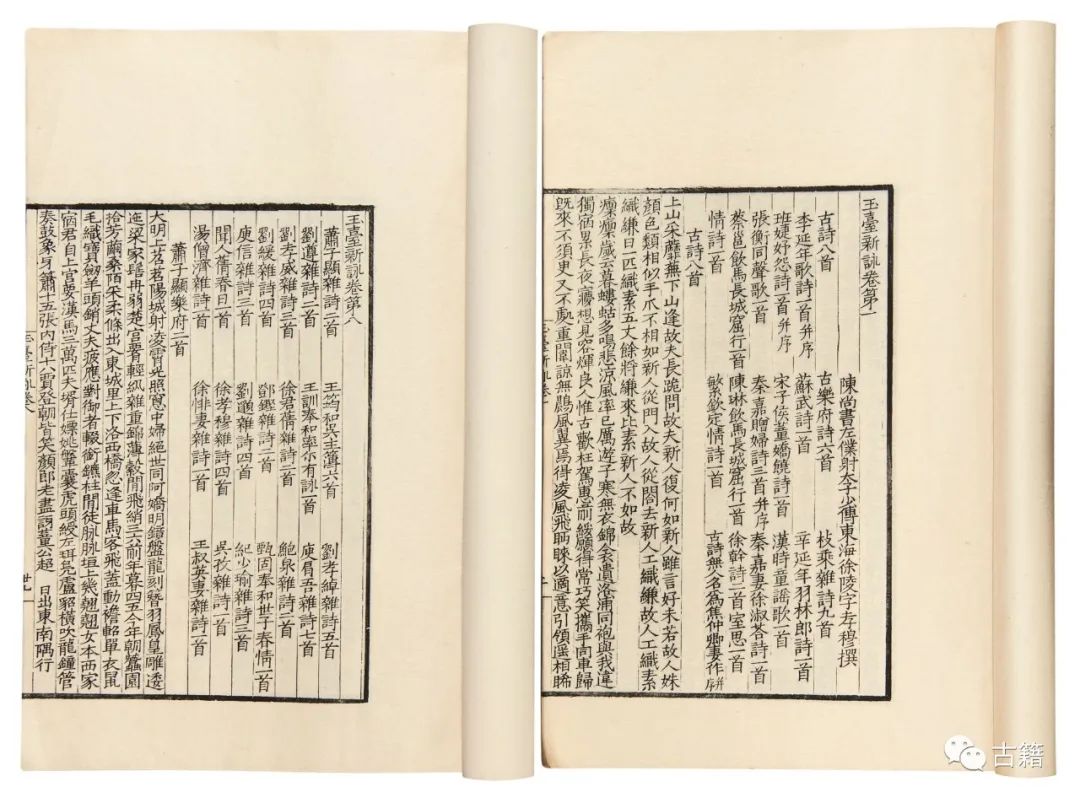 玉臺新詠卷第一
陳尚書左僕射太子少傅東海徐陵字孝穆撰
古詩八首 古樂府詩六首 枚乘雜詩九首
李延年歌詩一首并序 蘇武詩一首 辛延年羽林郎詩一首
班婕妤怨詩一首并序 宋子侯董嬌饒詩一首 漢時童謠歌一首
張衡同聲歌一首 秦嘉贈婦詩三首并序 秦嘉妻徐淑荅詩一首
蔡邕飲馬長城窟行一首 陳琳飲馬長城窟行一首 徐幹詩二首室思一首
情詩一首 繁欽定情詩一首 古詩無名人為焦仲卿妻作并序
古詩八首
上山采蘼蕪下山逢故夫長跪問故夫新人復何如新人雖言好未若故人姝
顏色類相似手爪不相如新人從門入故人從閤去新人工織縑故人工織素
織縑日一匹織素五丈餘將縑來比素新人不如故
凜凜歲云暮螻蛄多鳴悲涼風率已厲遊子寒無衣錦衾遺洛浦同袍與我違
獨宿累長夜夢想見容輝良人惟古歡枉駕惠前綏願得常巧笑攜手同車歸
既來不須臾又不處重闈諒無鷐風翼焉得凌風飛眄睞以適意引領遥相睎
玉臺新詠卷一
玉臺新詠卷第八
蕭子顯雜詩二首 王筠和吳主簿六首 劉孝綽雜詩五首
劉遵雜詩二首 王訓奉和率尒有詠一首 庾肩吾雜詩七首
劉孝威雜詩三首 徐君蒨雜詩二首 鮑泉雜詩二首
劉緩雜詩四首 鄧鏗雜詩二首 甄固奉和世子春情一首
庾信雜詩三首 劉邈雜詩四首 紀少瑜雜詩三首
聞人蒨春日一首 徐孝穆雜詩四首 吳孜雜詩一首
湯僧濟雜詩一首 徐悱妻雜詩一首 王叔英妻雜詩一首
蕭子顯樂府二首
大明上苕苕陽城射凌霄光照窻中婦絕世同阿嬌明鏡盤龍刻簪羽鳳皇雕逶
迤梁家髻冉弱楚宮署輕紈雜重錦薄縠間飛綃三六前年暮四五今年朝蠶園
拾芳繭桑陌采柔條出入東城里上下洛西橋忽逢車馬客飛蓋動襜軺單衣鼠
毛織寶劒羊頭銷丈夫疲應對御者輟銜鑣柱間徒脉脉垣上幾翹翹女本西家
宿君自上宮要漢馬三萬匹夫壻仕嫖姚鞶囊虎頭綬左珥鳧盧貂橫吹龍鍾管
奏鼓象身簫十五張內侍十八賈登朝皆笑顏郎老盡訝董公超 日出東南隅行
玉臺新詠卷八
廿九
古籍